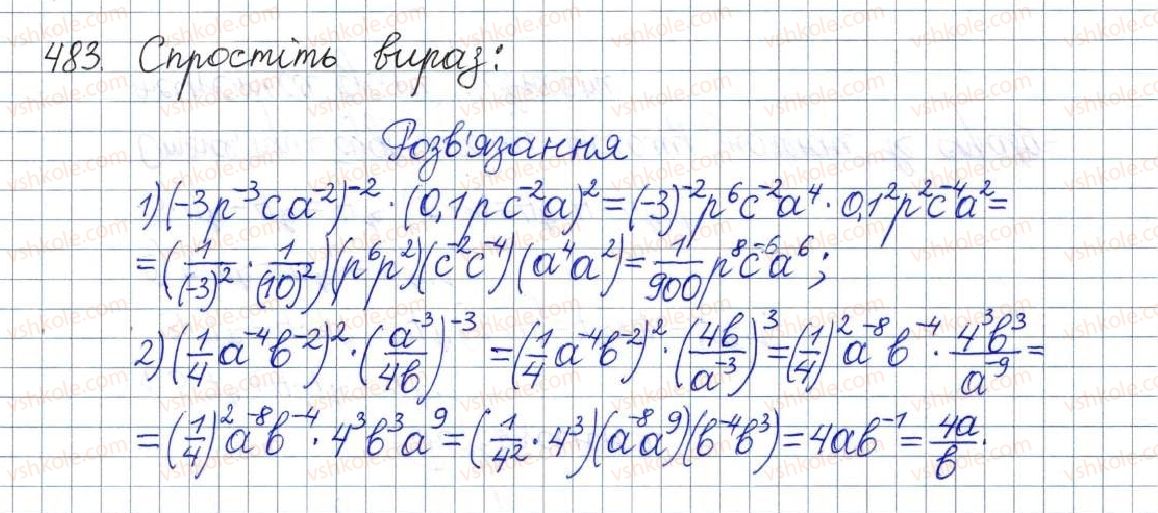 483. Спростіть вираз:
Розв'язання
1) (-3p⁻³ca⁻²)⁻² · (0,1pc⁻²a)² = (-3)⁻²p⁶c⁻²a⁴ · 0,1²p²c⁻⁴a² =
= (1/(-3)² · 1/(10)²)(p⁶p²)(c⁻²c⁻⁴)(a⁴a²) = 1/900 p⁸c⁻⁶a⁶;
2) (1/4 a⁻⁴b⁻²)² · (a⁻³/4b)⁻³ = (1/4 a⁻⁴b⁻²)² · (4b/a⁻³)³ = (1/4)²a⁻⁸b⁻⁴ · 4³b³/a⁻⁹ =
= (1/4)²a⁻⁸b⁻⁴ · 4³b³a⁹ = (1/4² · 4³)(a⁻⁸a⁹)(b⁻⁴b³) = 4ab⁻¹ = 4a/b.